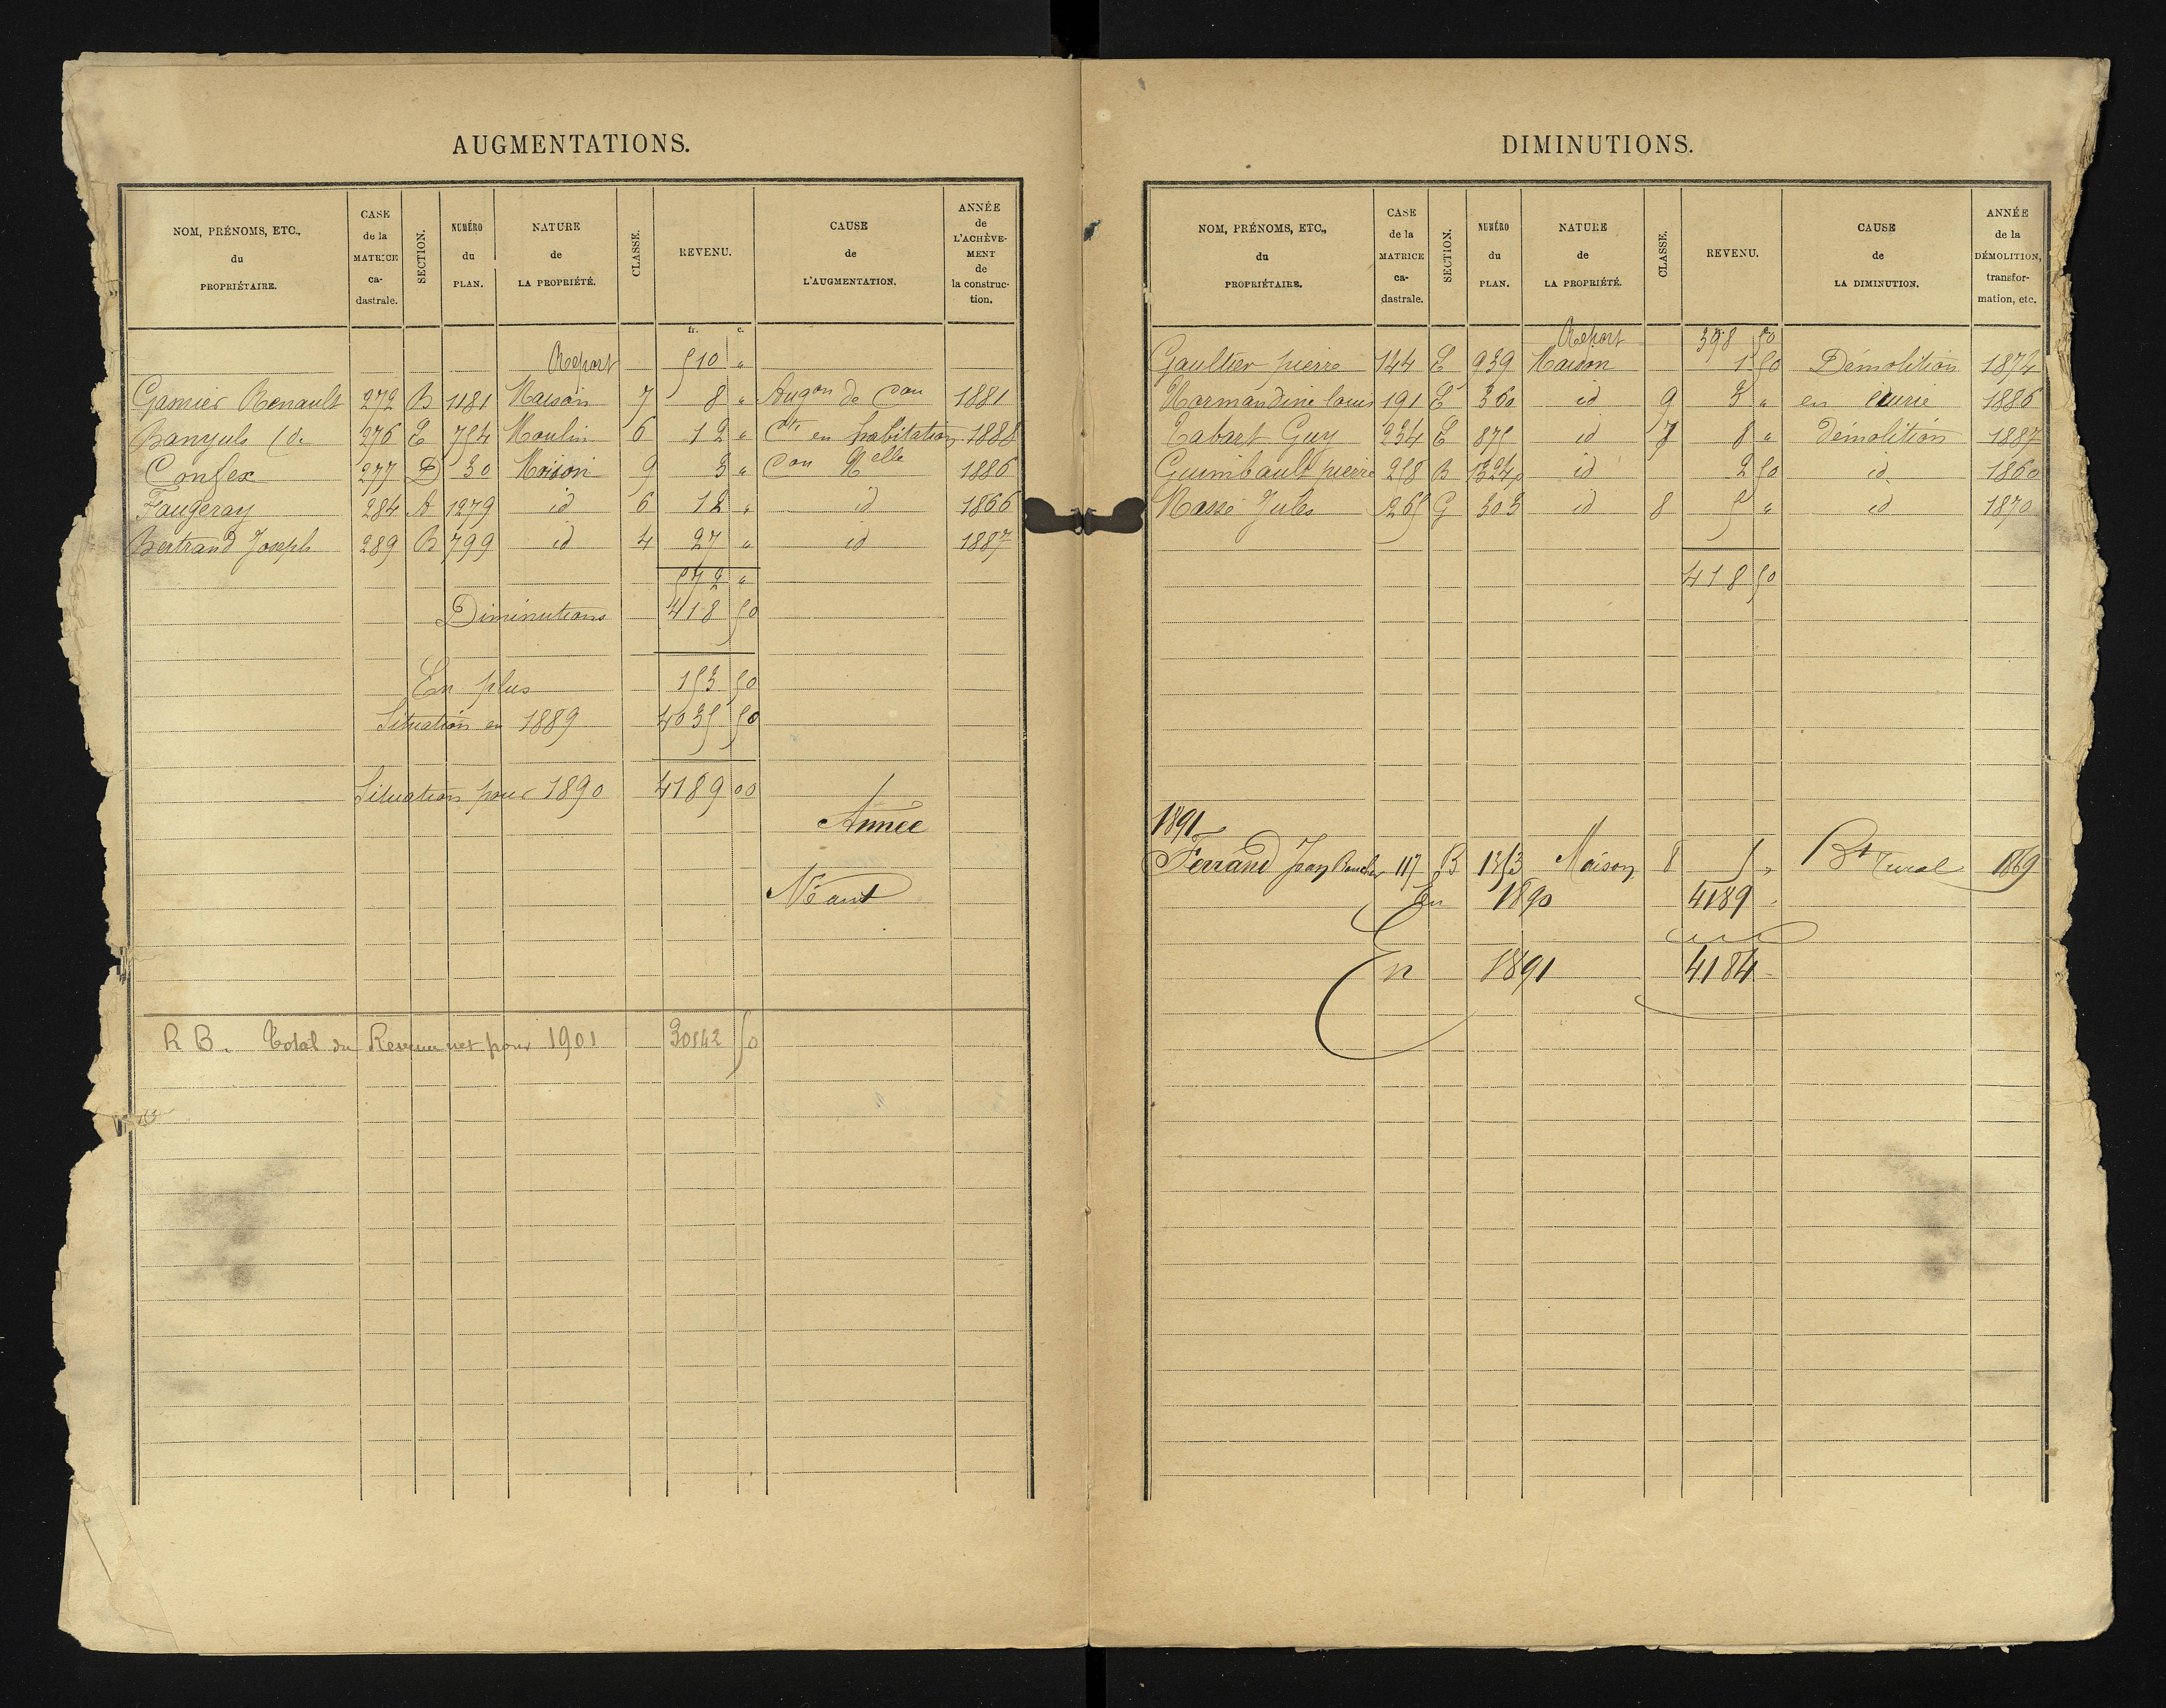 AUGMENTATIONS.
NOM, PRÉNOMS, ETC., du PROPRIÉTAIRE. CASE de la MATRICE ca-dastrale. SECTION. NUMÉRO du PLAN. NATURE de LA PROPRIÉTÉ. CLASSE. REVENU. CAUSE de L'AUGMENTATION. ANNÉE de L'ACHÈVE-MENT de la construc-tion.
fr. c.
Report 510 "
Garnier Renault 272 B 1181 Maison 7 8 " Augon de Con 1881
Banyuls (de 276 E 754 Moulin 6 12 " Cti en habitation 1888
Confex 277 D 30 Maison 9 3 " Con Nelle 1886
Faugeray 284 A 1279 id 6 12 " id 1866
Bertrand Joseph 289 B 799 id 4 27 " id 1887
572 "
Diminutions 418 50
En plus 153 50
Situation en 1889 4035 50
Situation pour 1890 4189 00
Année
Néant
R B. Total du Revenu net pour 1901 30142 50
DIMINUTIONS.
NOM, PRÉNOMS, ETC., du PROPRIÉTAIRE. CASE de la MATRICE ca-dastrale. SECTION. NUMÉRO du PLAN. NATURE de LA PROPRIÉTÉ. CLASSE. REVENU. CAUSE de LA DIMINUTION. ANNÉE de la DÉMOLITION, transfor-mation, etc.
Report 398 50
Gaultier pierre 144 E 939 Maison 1 50 Démolition 1874
Normandine louis 191 E 360 id 9 3 " en écurie 1886
Tabart Guy 234 E 875 id 7 8 " démolition 1887
Guimbault pierre 258 B 1324p id 2 50 id 1860
Massé Jules 265 G 303 id 8 5 " id 1870
418 50
1891
Ferrand Jean 117 B 1353 Maison 8 5 " Bt rural 1869
En 1890 4189
En 1891 4184